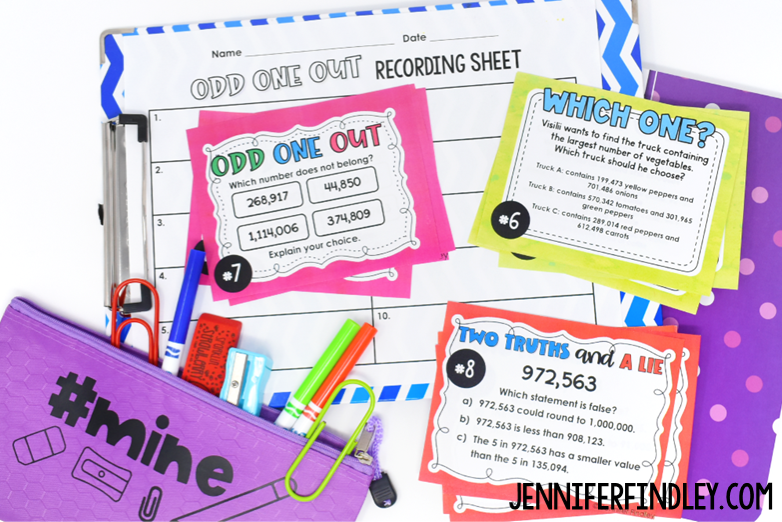 Name Date
ODD ONE OUT RECORDING SHEET
1.
2.
3.
4.
5.
10.
ODD ONE OUT
Which number does not belong?
268,917 44,850
1,114,006 374,809
Explain your choice.
#7
WHICH ONE?
Visilii wants to find the truck containing
the largest number of vegetables.
Which truck should he choose?
Truck A: contains 199,473 yellow peppers and
701,486 onions
Truck B: contains 570,342 tomatoes and 301,965
green peppers
Truck C: contains 289,014 red peppers and
612,498 carrots
#6
TWO TRUTHS and A LIE
#8
972,563
Which statement is false?
a) 972,563 could round to 1,000,000.
b) 972,563 is less than 908,123.
c) The 5 in 972,563 has a smaller value
than the 5 in 135,094.
#mine
JENNIFERFINDLEY.COM